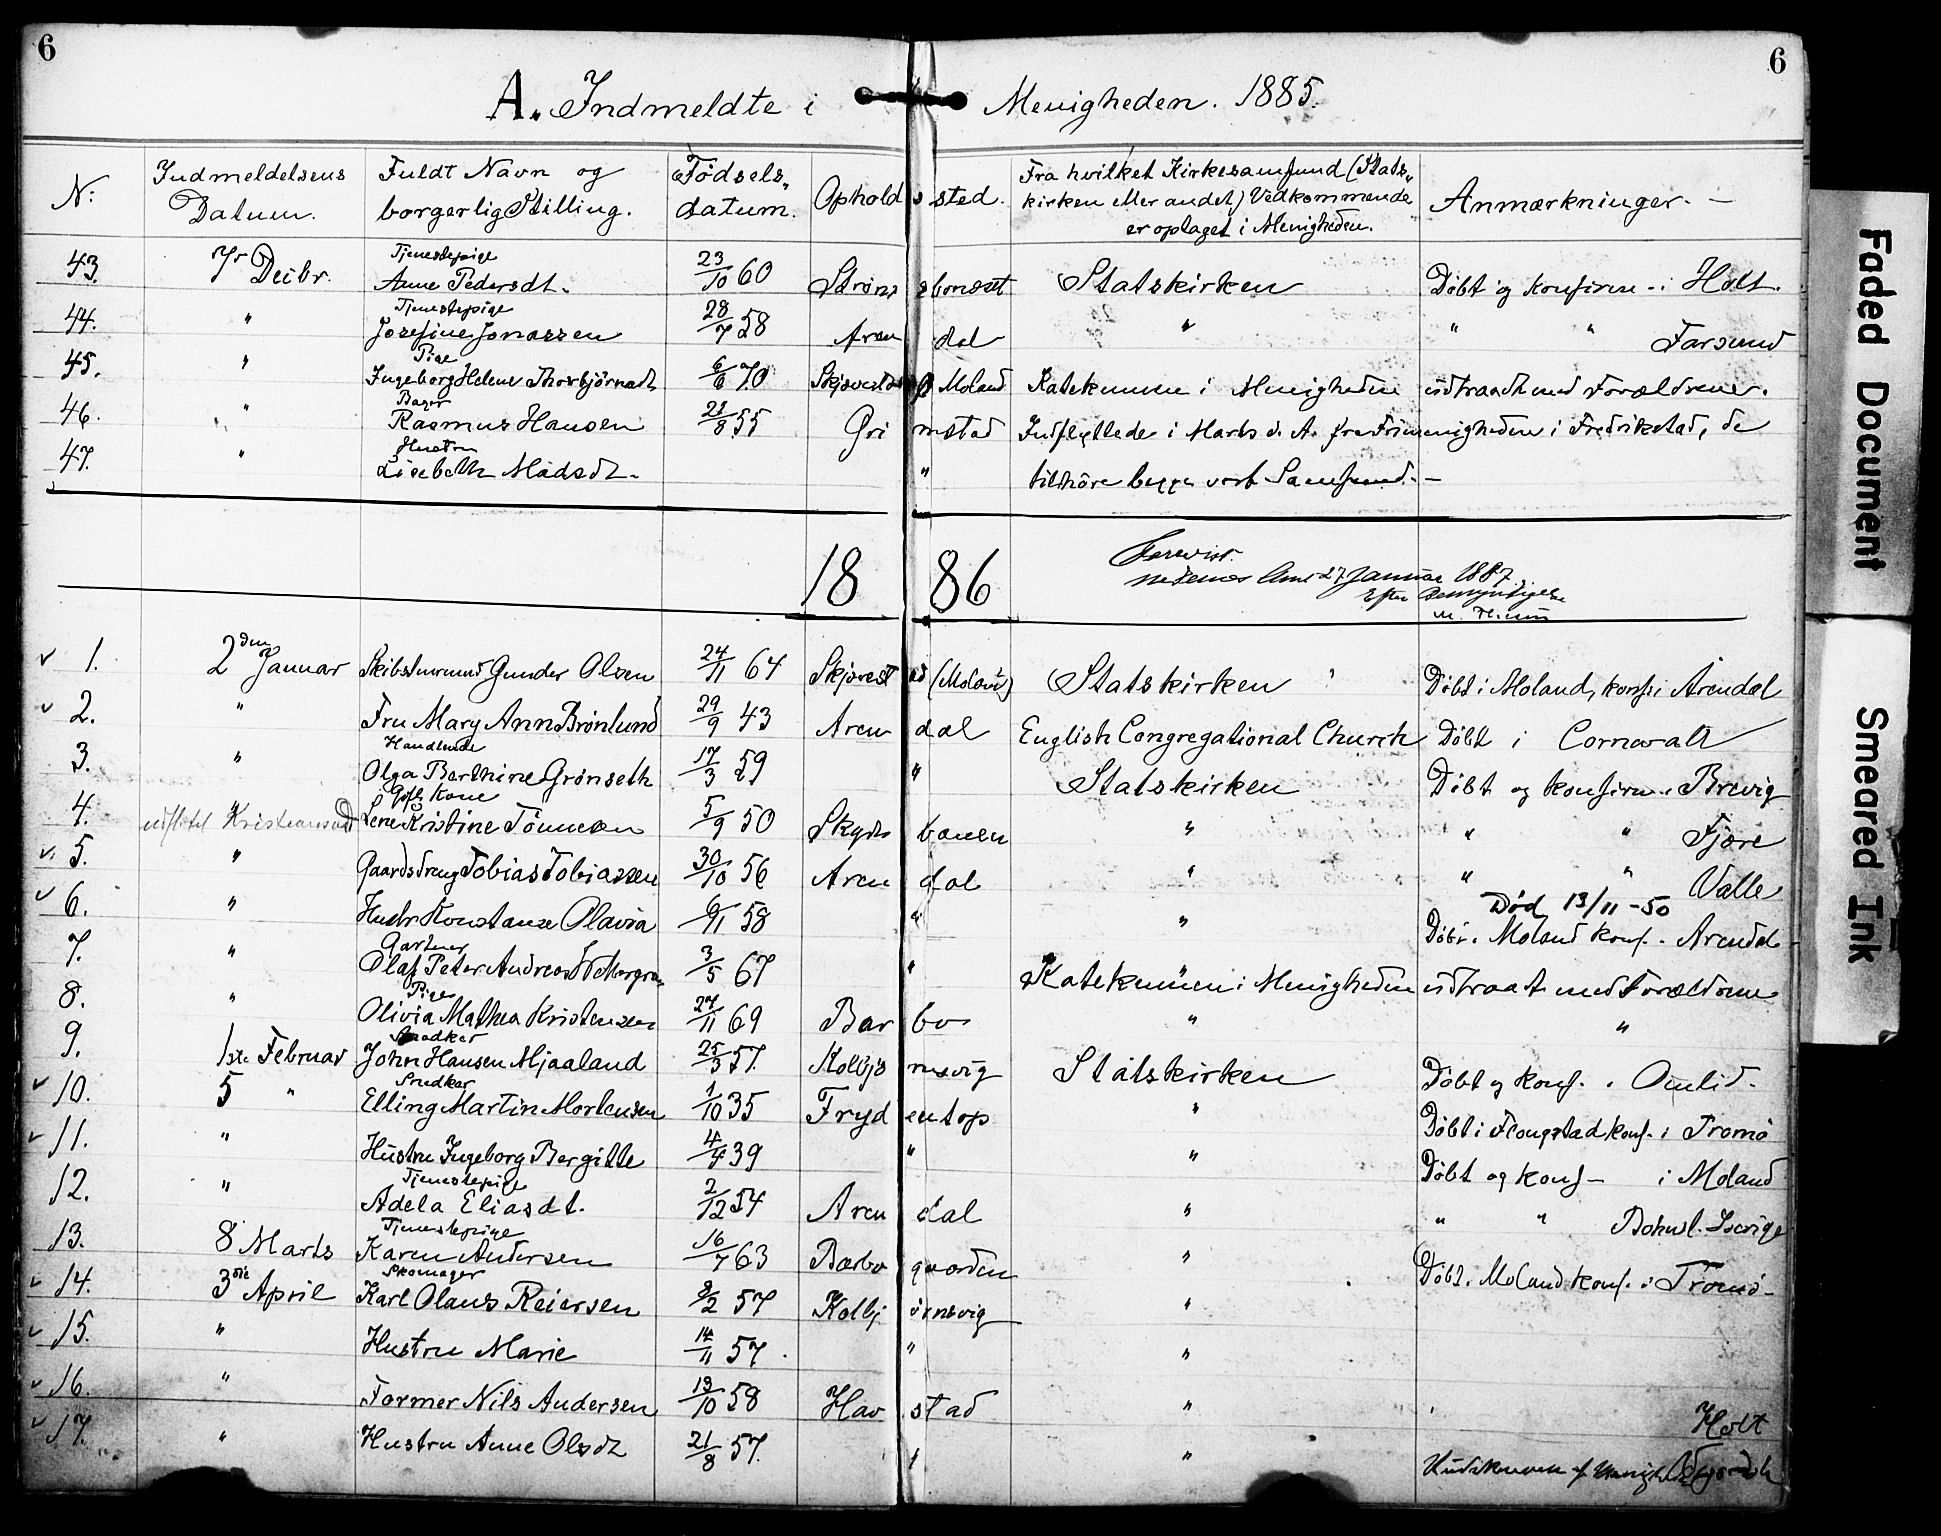 6 6
A. Indmeldte i Menigheden. 1885.
N: Indmeldelsens Datum. Fuldt Navn og borgerlig Stilling. Fødsels- datum. Opholdssted. Fra hvilket Kirkesamfund (Stats- kirken eller andet) Vedkommende er optaget i Menigheden. Anmærkninger. –
43. 7r Decbr. Tjenestepige Anne Pedersdt. 23/10 60 Strømsbonæset Statskirken Døbt og konfirm. i Holt.
44. " Tjenestepige Josefine Jonassen 28/7 58 Arendal " " " Farsund
45. " Pige Ingeborg Helene Thorbjörnsdt 6/6 70 Moland Katekumen i Menigheden udtraadt med Forældrene.
46. " Bager Rasmus Hansen 28/8 55 Grimstad Indflyttede i Marts d. A. fra Frimenigheden i Fredrikstad, de
47. " Hustru Lisebeth Madsdt. " tilhöre begge vort Samfund. –
1886
Nedenes Amt 27 Januar 1887.
Efter Bemyndigelse
1. 2den Januar Gunder Olsen 24/11 64 Skjærestad (Moland) Statskirken Døbt i Moland, konf. i Arendal
2. " Fru Mary Ann Brönlund 29/9 43 Arendal English Congregational Church Døbt i Cornwall
3. " Handlende Olga Berthine Grönseth 17/3 59 " Statskirken Døbt og konfirm. i Brevig
4. " udflyttet Kristiansand Kone Lene Kristine Tönnesen 5/9 50 " " " Fjære
5. " Gaardsdreng Tobias Tobiassen 30/10 56 Arendal " " " Valle
Död 13/11 - 50
6. " Hustr Konstanse Olavia 6/11 58 " " Döbt i Moland konf. i Arendal
7. " Gartner Olaf Peter Andreas 3/5 67 " Katekumen i Menigheden udtraadt med Forældrene
8. " Pige Olivia Mathea Kristensen 27/11 69 Barbo " "
9. 1ste Februar Snedker John Hansen Mjaaland 25/3 57. Kolbjörnsvig Statskirken Døbt og konf. i Omlid.
10. 5 " Snedker Elling Martin Mortensen 1/10 35 Frydentop " Døbt i Flougstad konf. i Tromö
11. " Hustru Ingeborg Bergitte 4/4 39 " " Døbt og konf – i Moland
12. " Tjenestepige Adela Eliasdt. 2/12 54 Arendal " " " Bohusl. Sverige
13. 8 Marts Tjenestepige Karen Andersen 16/7 63 Barbo " Døbt i Moland konf. i Tromö –
14. 3die April Skomager Karl Olaus Reiersen 8/2 57 Kolbjörnsvig "
15. " Hustru Marie 14/11 57 " "
16. " Former Nils Andersen 13/10 58 Havstad " Holt
17. " Hustru Anne Olsdt 21/8 57. "
Faded Document
Smeared Ink